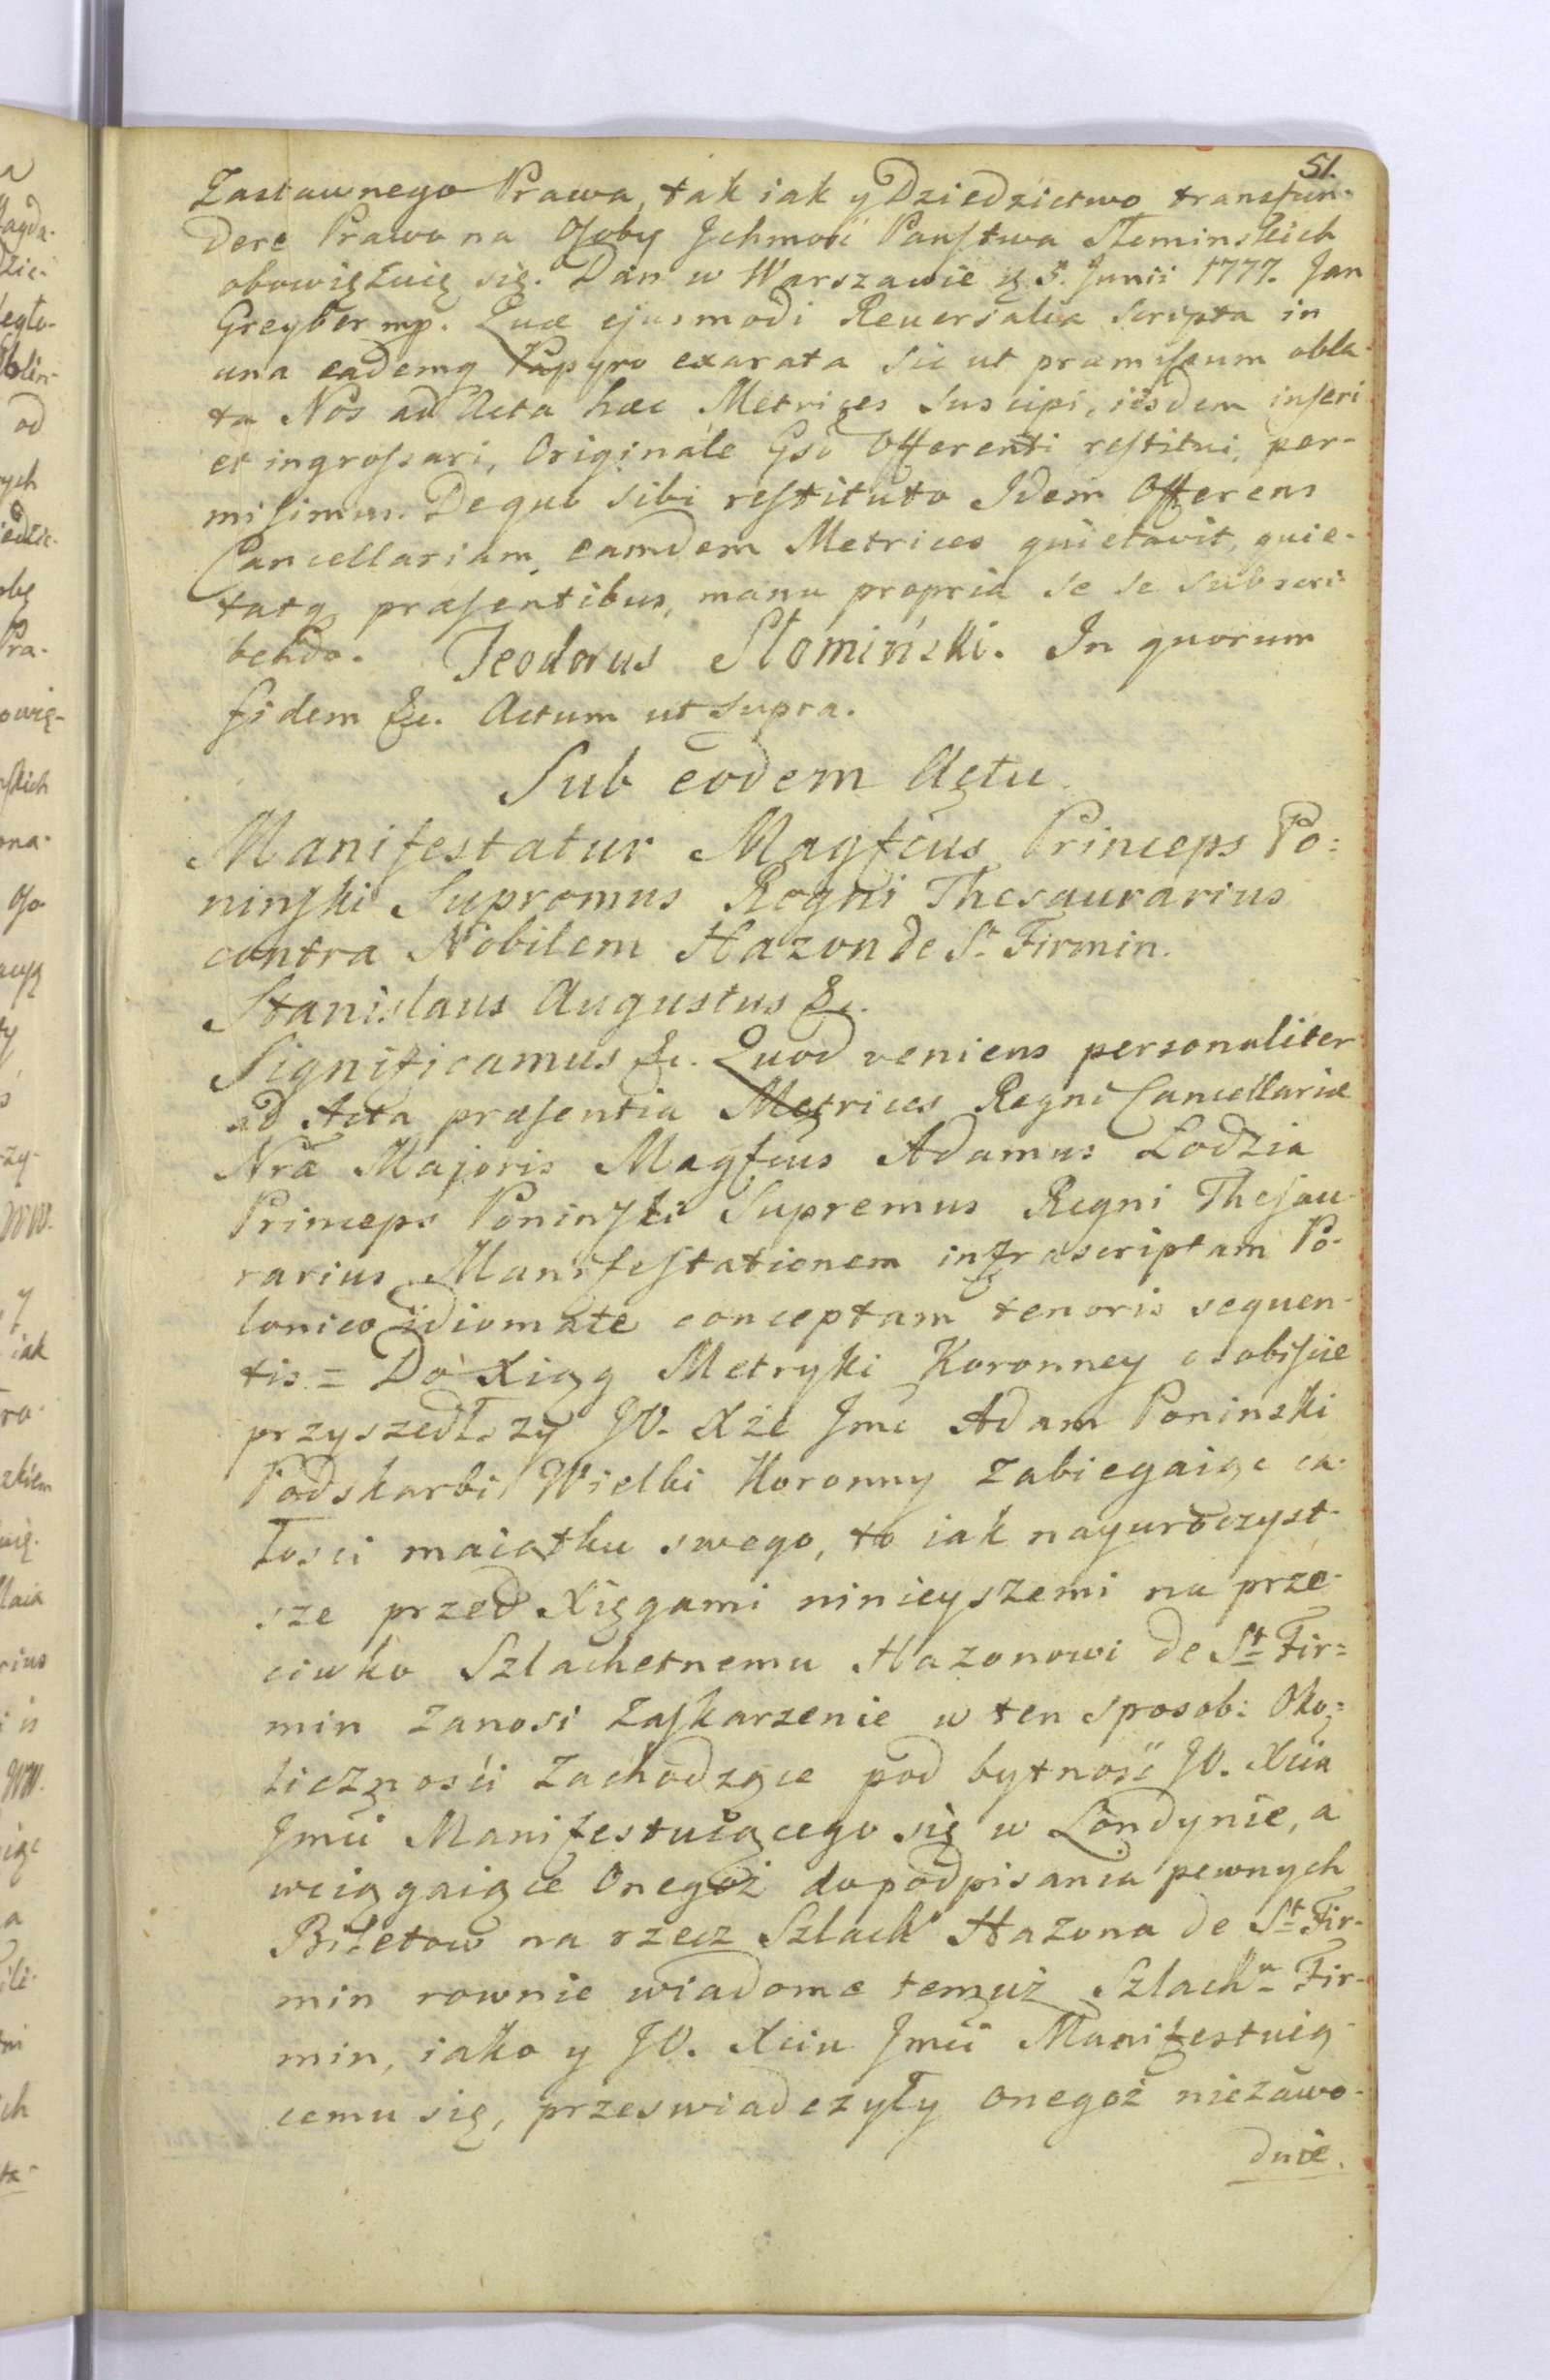 51.
Zastawnego Prawa, tak iak y Dziedzictwo transfun-
dere Prawo na Osoby Jchmość Państwa Słominskich
obowięzuię się. Dan w Warszawie d. 5. Junii 1777. Jan
Greyber mp. Quæ ejusmodi Reversalia scripta in
una eademq Papyro exarata sic ut præmissum obla-
ta Nos ad Acta hæc Metrices suscipi, iisdem inseri
et ingrossari, Originale Gso Offerenti restitui, per-
misimus. De quo sibi restituto Idem Offerens
Cancellariam eamdem Metrices quietavit, quie-
tatq præsentibus, manu propria se se subscri-
bendo. Teodorus Słomiński. In quorum
fidem &c. Actum ut supra.
Sub eodem Actu.
Manifestatur Magfcus Princeps Po=
ninski Supremus Regni Thesaurarius
contra Nobilem Hazon de St. Firmin.
Stanislaus Augustus &c.
Significamus &c. Quod veniens personaliter
ad Acta præsentia Metrices Regni Cancellariæ
Nrã Majoris Magfcus Adamus Lodzia
Princeps Poninski Supremus Regni Thesau-
rarius Manifestationem infrascriptam Po-
lonico idiomate conceptam tenoris sequen-
tis = Do Xiąg Metryki Koronney osobiscie
przyszedłszy JO. Xże Jmć Adam Poninski
Podskarbi Wielki Koronny zabiegaiąc ca-
łosci maiątku swego, to iak nayuroczyst-
sze przed Xięgami ninieyszemi na prze-
ciwko Szlachetnemu Hazonowi de St Fir=
min zanosi zaskarzenie w ten sposob: Oko=
licznośći zachodzące pod bytność JO. Xcia
Jmći Manifestuiącego się w Londynie, a
wciągaiące Onegoż do podpisania pewnych
Biletow na rzecz Szlach° Hazona de St Fir-
min rownie wiadome temuż Szlachu Fir-
min, iako y JO. Xciu Jmći Manifestuią-
cemu się, przeswiadczyły onegoż niezawo-
dnie.